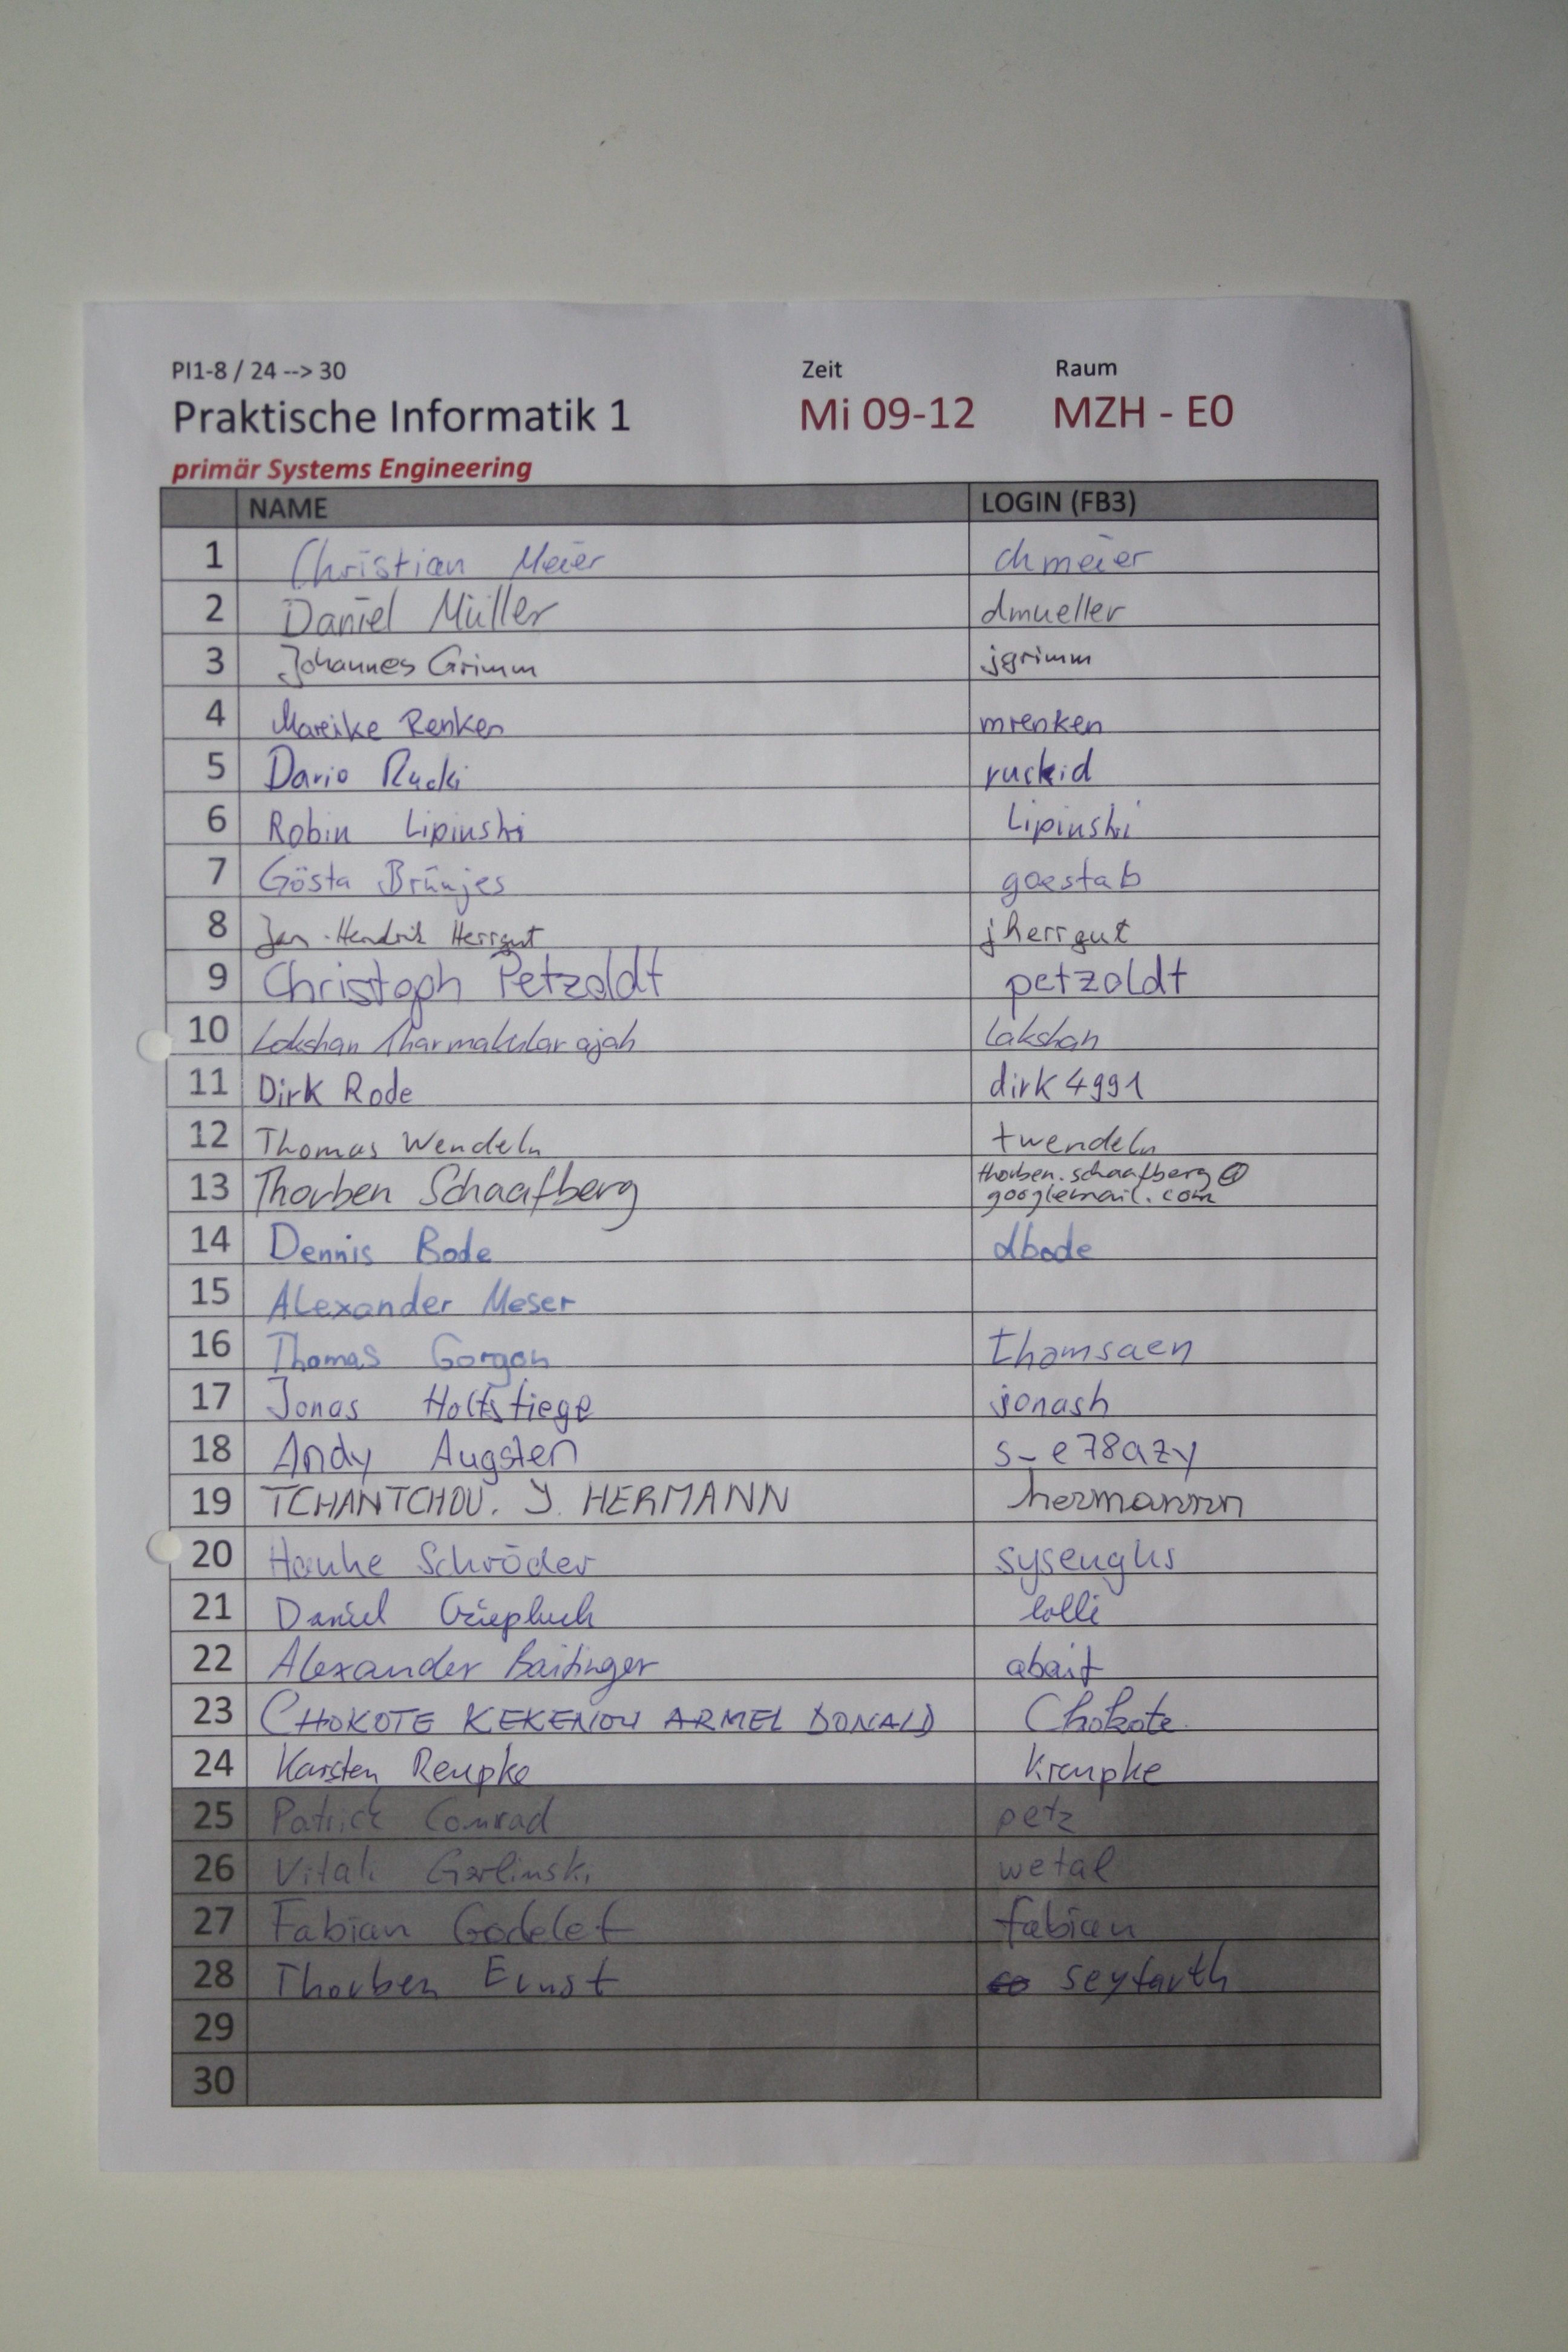 PI1-8 / 24 --> 30 Zeit Raum
Praktische Informatik 1 Mi 09-12 MZH - E0
primär Systems Engineering
NAME LOGIN (FB3)
1 Christian Meier chmeier
2 Daniel Müller dmueller
3 Johannes Grimm jgrimm
4 Mareike Renken mrenken
5 Dario Rucki ruckid
6 Robin Lipinski Lipinski
7 Gösta Brünjes goestab
8 Jan-Hendrik Herrgut jherrgut
9 Christoph Petzoldt petzoldt
10 Lakshan Tharmakularajah Lakshan
11 Dirk Rode dirk4991
12 Thomas Wendeln twendeln
13 Thorben Schaafberg thorben.schaafberg@
googlemail.com
14 Dennis Bode dbode
15 Alexander Meser
16 Thomas Gorgon thomsaen
17 Jonas Holtstiege jonash
18 Andy Augsten s_e78azy
19 TCHANTCHOU. Y. HERMANN hermannn
20 Hauke Schröder sysenghs
21 Daniel lolli
22 Alexander Baitinger abait
23 CHOKOTE KEKENOU ARMEL DONALD Chokote
24 Karsten Reupke kreupke
25 Patrick Conrad petz
26 Vitali Gerlinski wetal
27 Fabian Godelet fabian
28 Thorben Ernst seyfarth
29
30